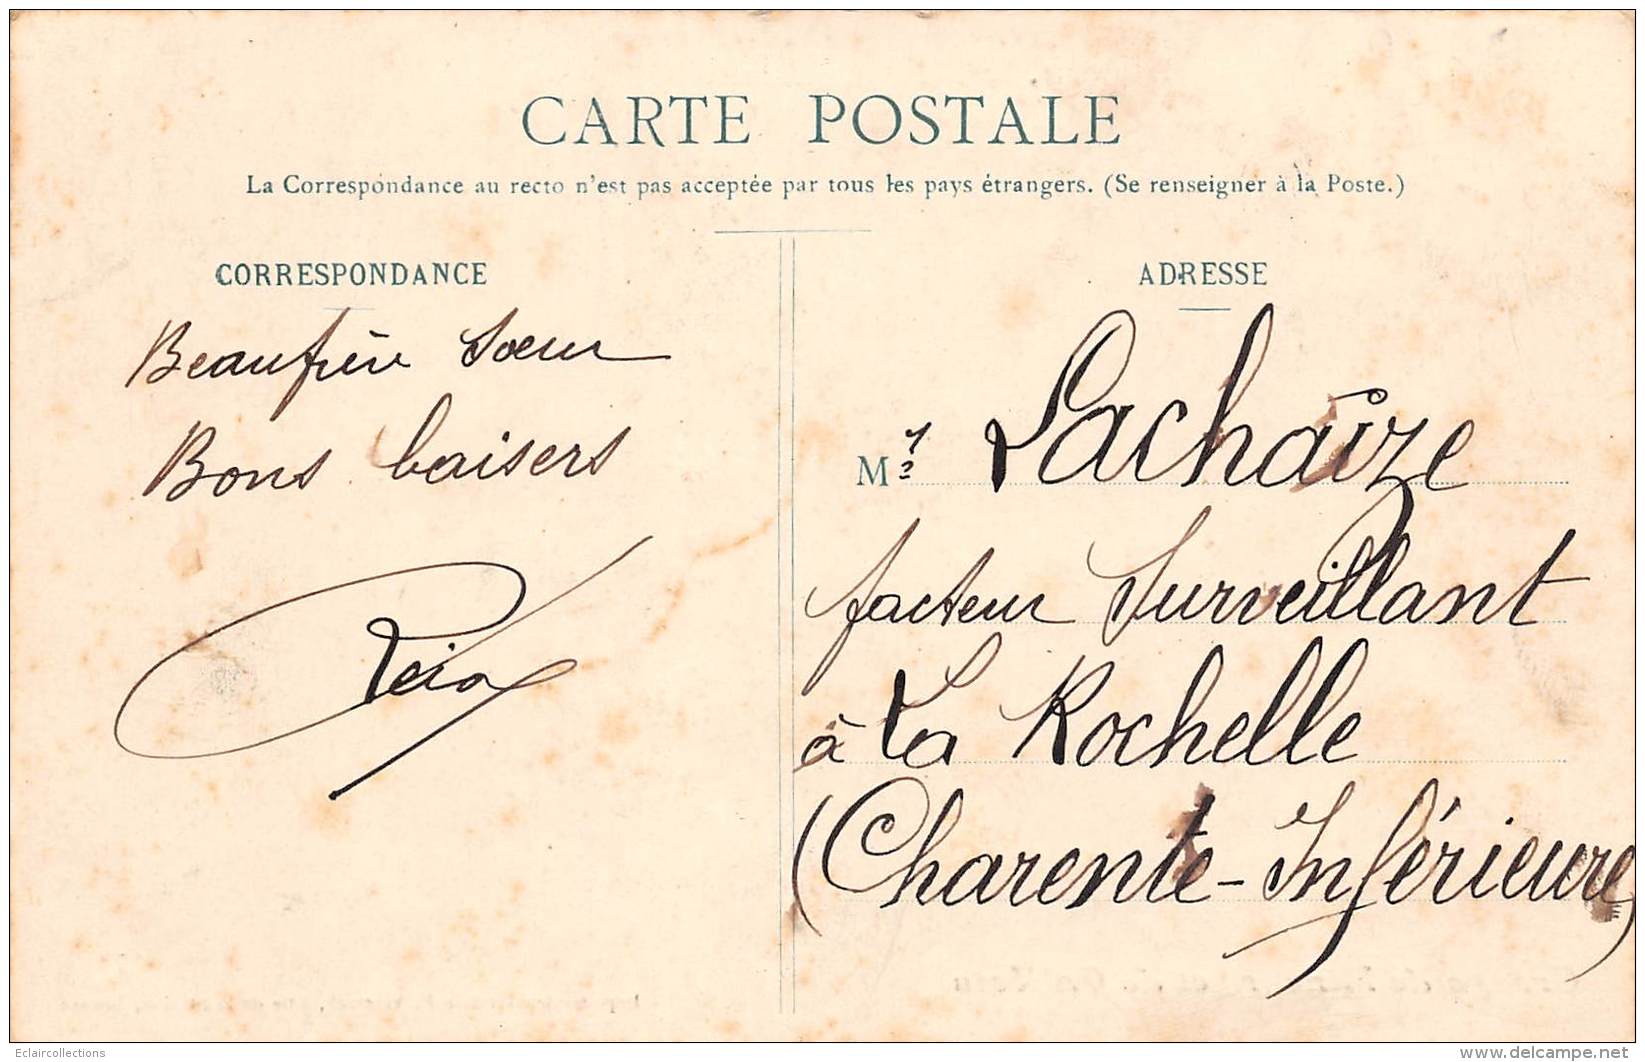 CARTE POSTALE
La Correspondance au recto n'est pas acceptée par tous les pays étrangers. (Se renseigner à la Poste.)
CORRESPONDANCE
Beaufrère Soeur
Bons baisers
ADRESSE
Mr Lachaize
facteur Surveillant
à La Rochelle
(Charente-Inférieure)
Eclaircollections
www.delcampe.net